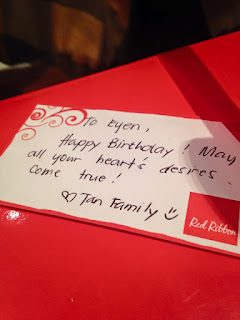 To Eyen,
Happy Birthday! May
all your heart's desires
come true!
♡ Tan Family ☺
Red Ribbon